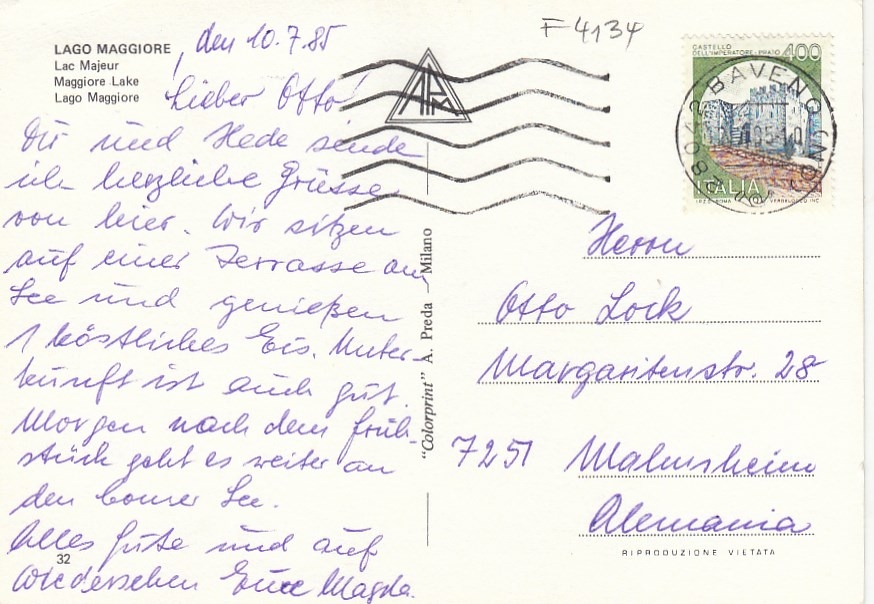 F 4134
LAGO MAGGIORE
Lac Majeur
Maggiore Lake
Lago Maggiore
, den 10.7.85
Lieber Otto!
Dir und Hede sende
ich herzliche Grüsse
von hier. Wir sitzen
auf einer Terrasse am
See und genießen
1 köstliches Eis. Unter-
kunft ist auch gut.
Morgen nach dem Früh-
stück geht es weiter an
den Comer See.
Alles Gute und auf
Wiedersehen Eure Magda.
32
"Colorprint" A. Preda - Milano
CASTELLO
DELL'IMPERATORE - PRATO 400
ITALIA
I.P.Z.S. ROMA
BAVENO
Herrn
Otto Lörk
Margaritenstr. 28
7251 Malmsheim
Alemania
RIPRODUZIONE VIETATA